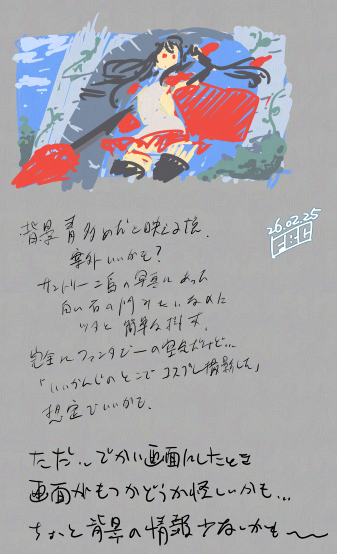 背景 青多めだと映える説.
案外いいかも?
26.02.25
サントリーニ島の写真にあった
白い石の門みたいなのに
ツタと簡単な押す.
完全にファンタジーの空気だけど...
「いいかんじのとこでコスプレ撮影した」
想定でいいかも.
ただ... でかい画面にしたとき
画面がもつかどうか怪しいかも...
ちょっと背景の情報少ないかも〜